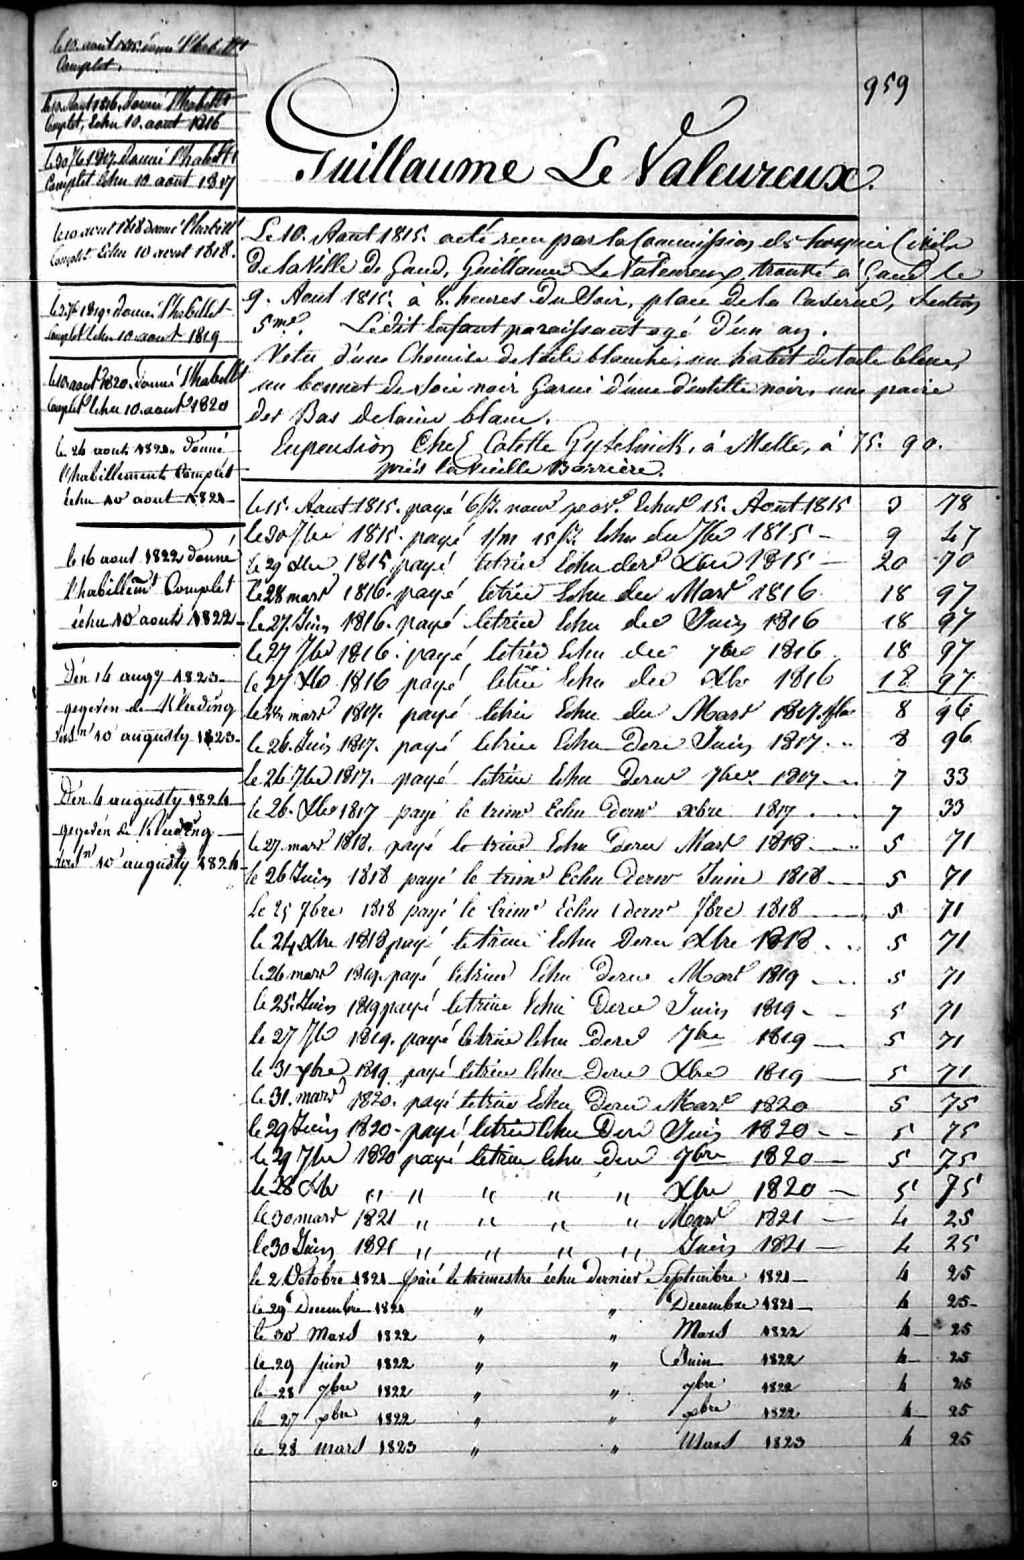 le 10. aout 1815. donné l'habillt
Complet.
le 10. Aout 1816. donné l'habillt
Complet, Echu 10. aout 1816
le 30 7bre 1817. donné l'habillt
Complet Echu 10 aout 1817
le 10 aout 1818 donné l'habillt
Complet Echu 10 aout 1818.
1819. donné l'habillet
Complet Echu 10 aout 1819
le 10 aout 1820. donné l'habillt
Complet Echu 10. aout 1820
le 26 aout 1821. donné
l'habillement Complet
échu 10 aout 1821
le 16 aout 1822 donné
l'habillemt Complet
échu 10 aout 1822
Den 16 augy 1823
gegeven de Kleeding
10 augusty 1823
Den 4 augusty 1824
gegeven de Kleeding
10 augusty 1824
959
Guillaume Le Valeureux.
Le 10. Aout 1815. acté reçu par la Commission des hospices Civils
de la Ville de Gand, Guillaume Le Valeureux, trouvé à Gand le
9. Aout 1815. à 8. heures du Soir, place de la Caserne, Section
5me. Ledit Enfant paraissant agé d'un an.
Vetu d'une Chemise de toile blanche, un habit de toile bleue,
un bonnet de Soie noir garni d'une dentelle noir, une paire
des Bas de laine blanc.
En pension Chez Colette Gyselinck, à Melle, à 75. 90.
près la Vieille Barrière.
le 15. Aout 1815. payé Echus 15. Aout 1815 3 78
le 30 7bre 1815. payé 1/m 15 Echu du 7bre 1815 9 47
le 29 Xbre 1815 payé letrim Echu der Xbre 1815 20 70
le 28 mars 1816. payé letrim Echu der Mars 1816 18 97
le 27. Juin 1816. payé letrim Echu der Juin 1816 18 97
le 27 7bre 1816. payé letrim Echu der 7bre 1816 18 97
le 27 Xb 1816 payé letrim Echu der Xbr 1816 18 97
le 28 mars 1817. payé letrim Echu du Mars 1817. 8 96
le 26. Juin 1817. payé letrim Echu Dere Juin 1817 8 96
le 26 7bre 1817. payé letrim Echu Dernr 7bre 1817 7 33
le 26. Xbre 1817 payé le trimr Echu dernr xbre 1817 7 33
le 27. mars 1818. payé le trime Echu Dern Mars 1818 5 71
le 26 Juin 1818 payé le trimr Echu Dernr Juin 1818 5 71
Le 25 7bre 1818 payé le trimr Echu dernr 7bre 1818 5 71
le 24 Xbre 1818 payé letrime Echu Dern Xbre 1818 5 71
le 26 mars 1819. payé letrim Echu Dern Mars 1819 5 71
le 25. Juin 1819 payé letrime Echu Dere Juin 1819 5 71
le 27 7b 1819. payé letrim Echu Dere 7bre 1819 5 71
le 31 xbre 1819 payé letrime Echu Dern Xbre 1819 5 71
le 31. mars 1820. payé letrim Echu Dern Mars 1820 5 75
le 29 Juin 1820 payé letrim Echu Dere Juin 1820 5 75
le 29 7bre 1820 payé letrim Echu Dere 7bre 1820 5 75
le 28 Xbr " " " " " Xbre 1820 5 75
le 30 mars 1821 " " " " Mars 1821 4 25
le 30 Juin 1821 " " " " Juin 1821 4 25
le 2 Octobre 1821 païé le trimestre échu dernier Septembre 1821 4 25
le 29 Decembre 1821 " " Decembre 1821 4 25
le 30 Mars 1822 " " Mars 1822 4 25
le 29 juin 1822 " " Juin 1822 4 25
le 28 7bre 1822 " " 7bre 1822 4 25
le 27 xbre 1822 " " xbre 1822 4 25
le 28 mars 1823 " " Mars 1823 4 25